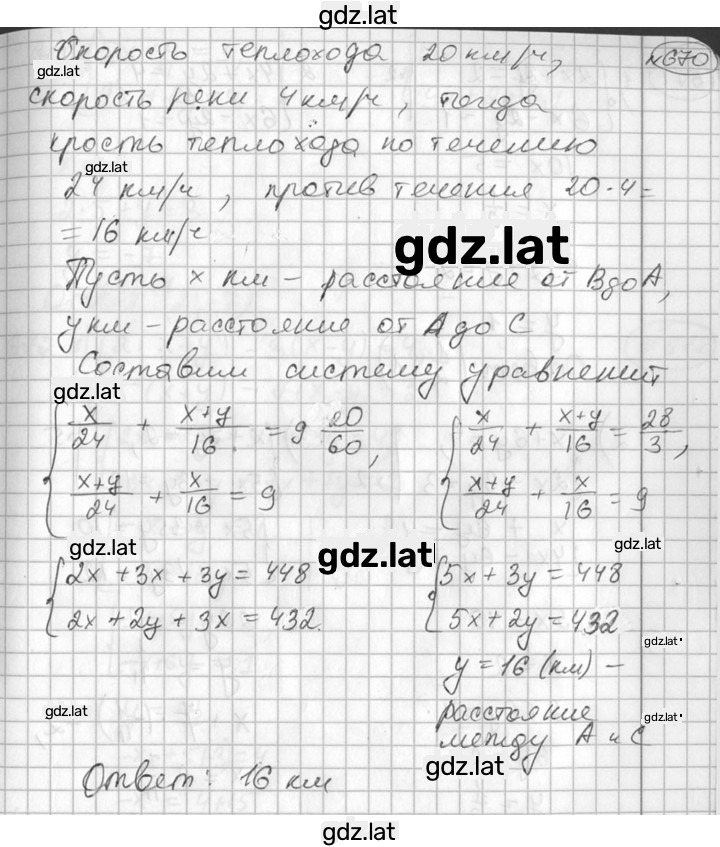 gdz.lat
Скорость теплохода 20 км/ч, №670
gdz.lat
скорость реки 4 км/ч, тогда
крость теплохода по течению
gdz.lat
24 км/ч, против течения 20-4=
=16 км/ч
gdz.lat
Пусть x км - расстояние от В до А,
y км - расстояние от А до С
Составим систему уравнений
gdz.lat
{ x/24 + (x+y)/16 = 9 20/60, { x/24 + (x+y)/16 = 28/3,
(x+y)/24 + x/16 = 9 (x+y)/24 + x/16 = 9
gdz.lat gdz.lat
{ 2x + 3x + 3y = 448 { 5x + 3y = 448
2x + 2y + 3x = 432. 5x + 2y = 432
gdz.lat
y = 16 (км) -
gdz.lat расстояние gdz.lat
между А и С
gdz.lat
Ответ: 16 км
gdz.lat